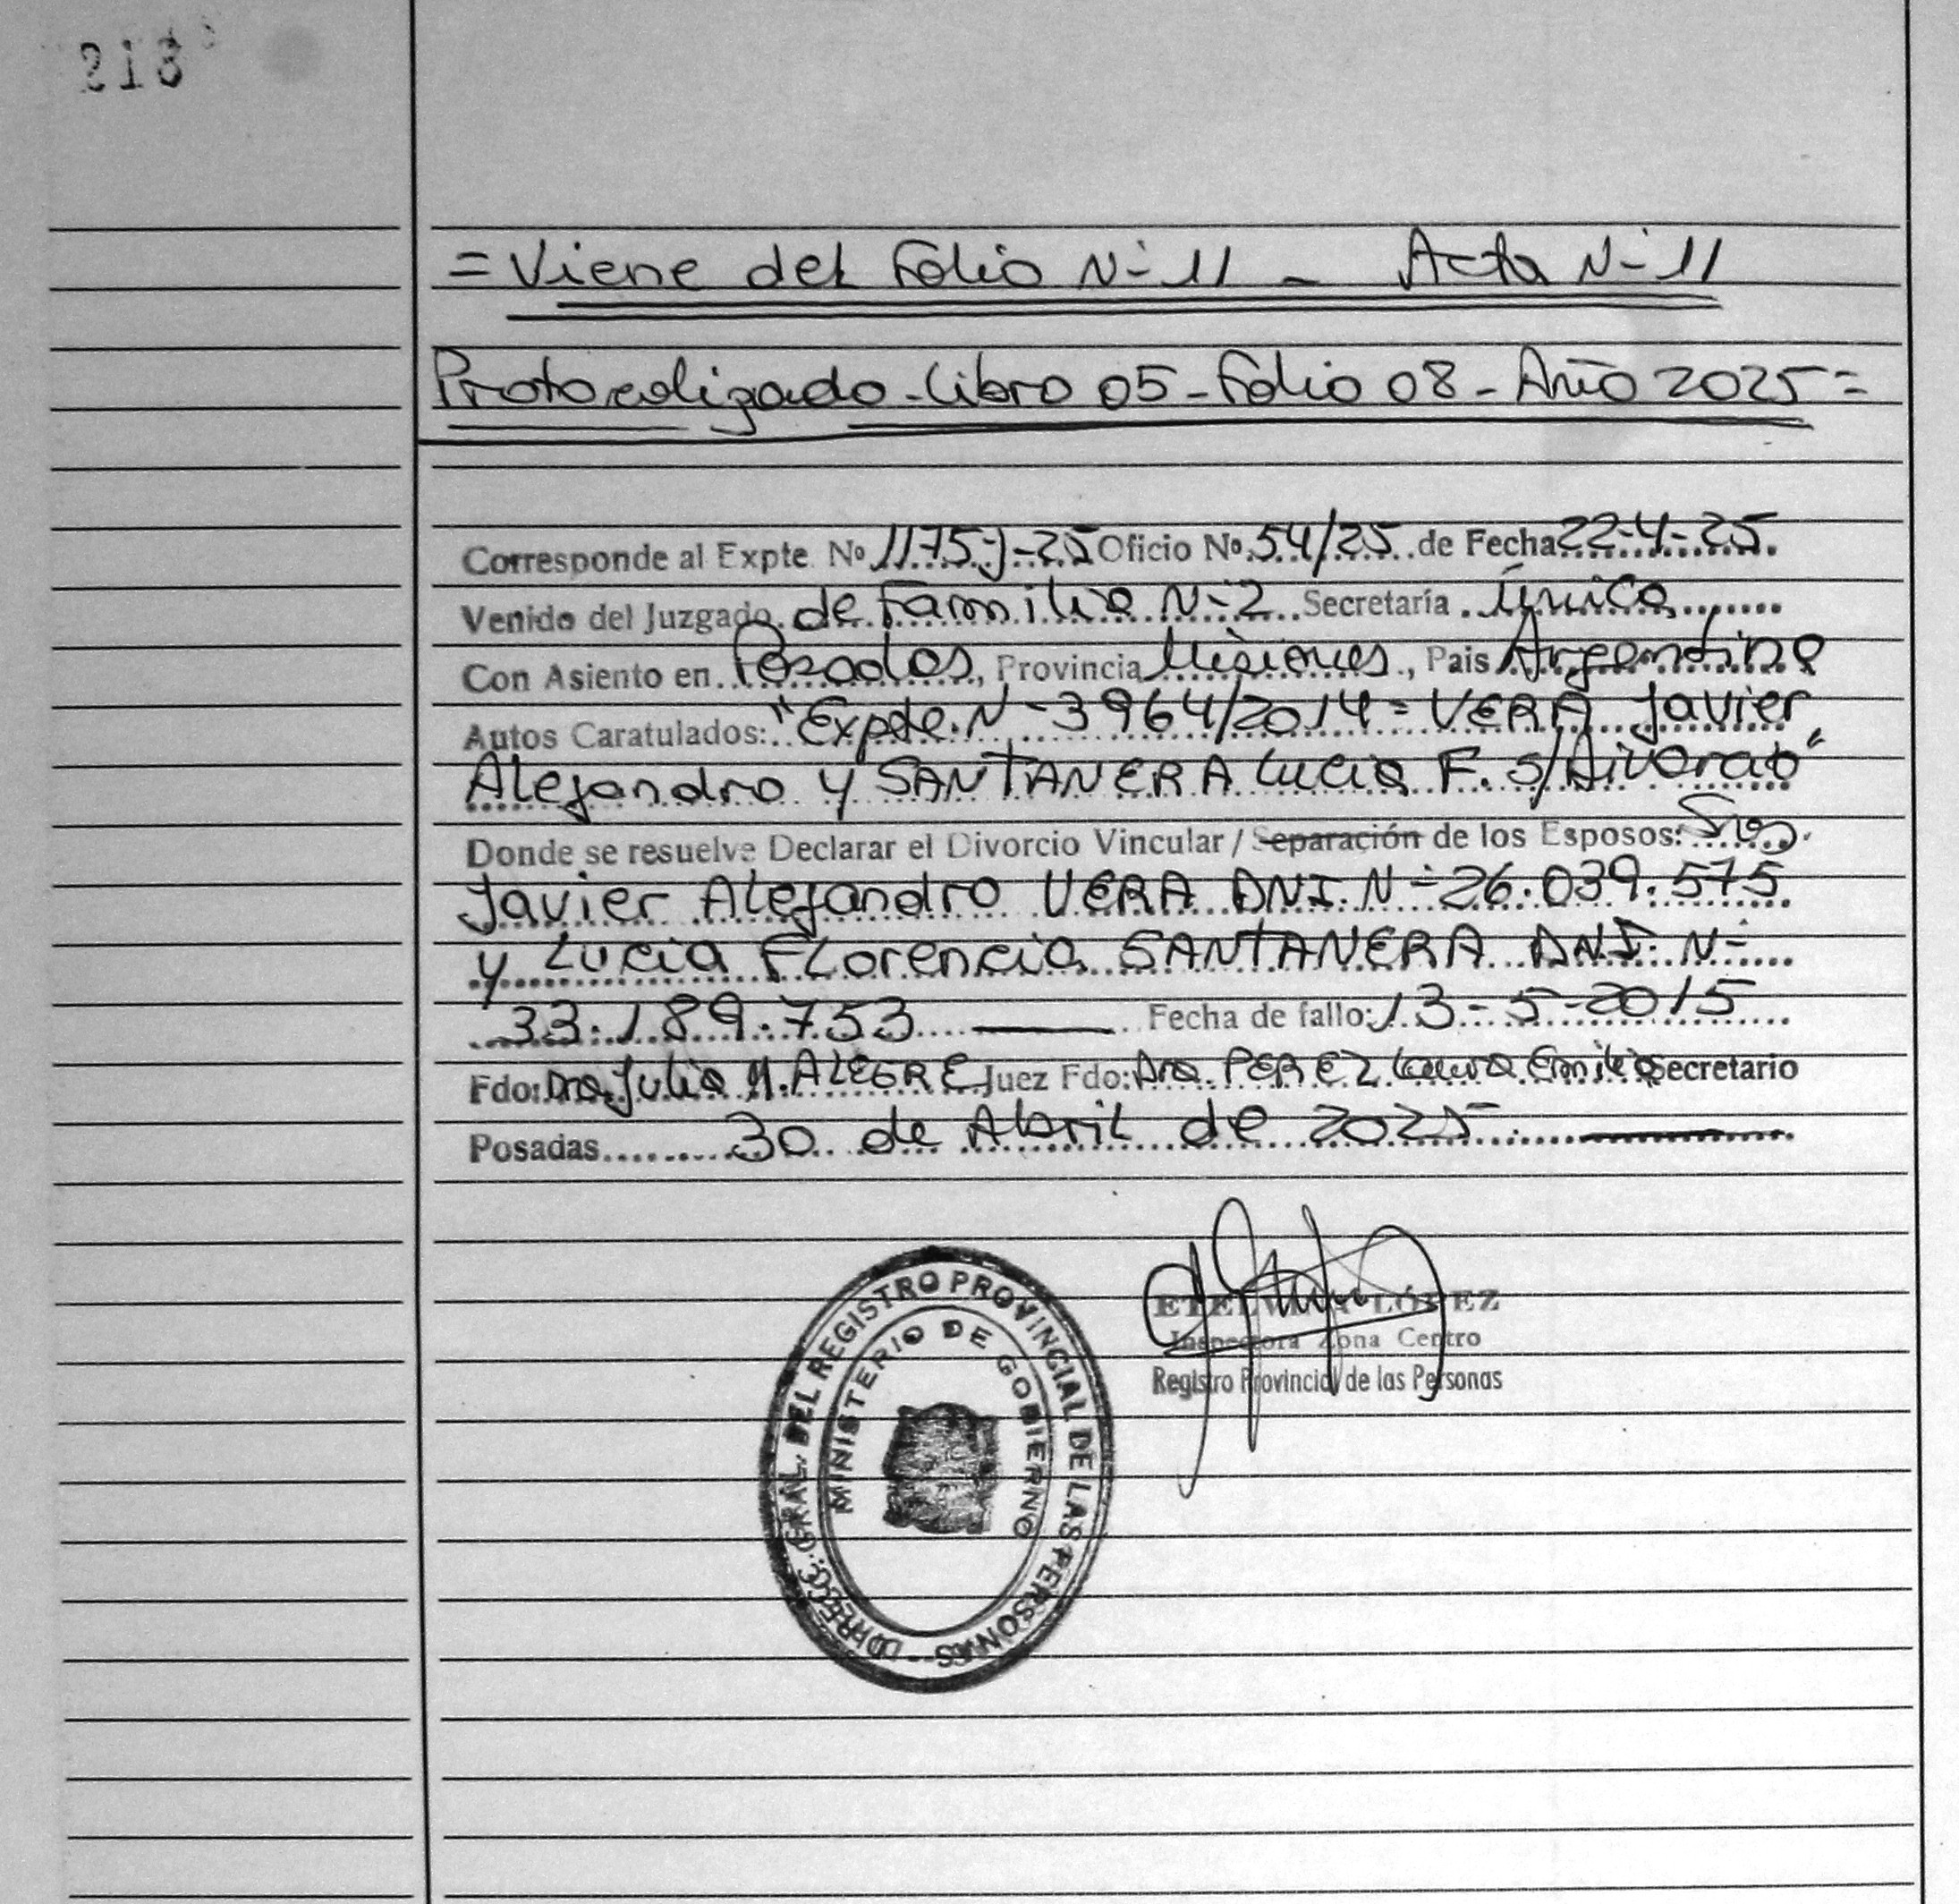 218
= Viene del Folio N- 11 - Acta N- 11
Protocolizado - Libro 05 - Folio 08 - Año 2025 =
Corresponde al Expte. Nº 1175-J-25 Oficio Nº 54/25 de Fecha 22-4-25
Venido del Juzgado de Familia N-2 Secretaría Única
Con Asiento en Posadas, Provincia Misiones, Pais Argentina
Autos Caratulados: "Expte. N- 3964/2014 = VERA Javier
Alejandro y SANTANERA Lucia F. s/Divorcio"
Donde se resuelve Declarar el Divorcio Vincular / Separación de los Esposos: Sres.
Javier Alejandro VERA DNI. N- 26.039.575
y Lucia Florencia SANTANERA DNI. N-
33.189.753 Fecha de fallo: 13-5-2015
Fdo: Dra. Julia M. ALEGRE Juez Fdo: Dra. PEREZ Laura Emilia Secretario
Posadas 30 de Abril de 2025
ETELVINA LÓPEZ
Inspectora Zona Centro
Registro Provincial de las Personas
DIRECC. GRAL. DEL REGISTRO PROVINCIAL DE LAS PERSONAS
MINISTERIO DE GOBIERNO